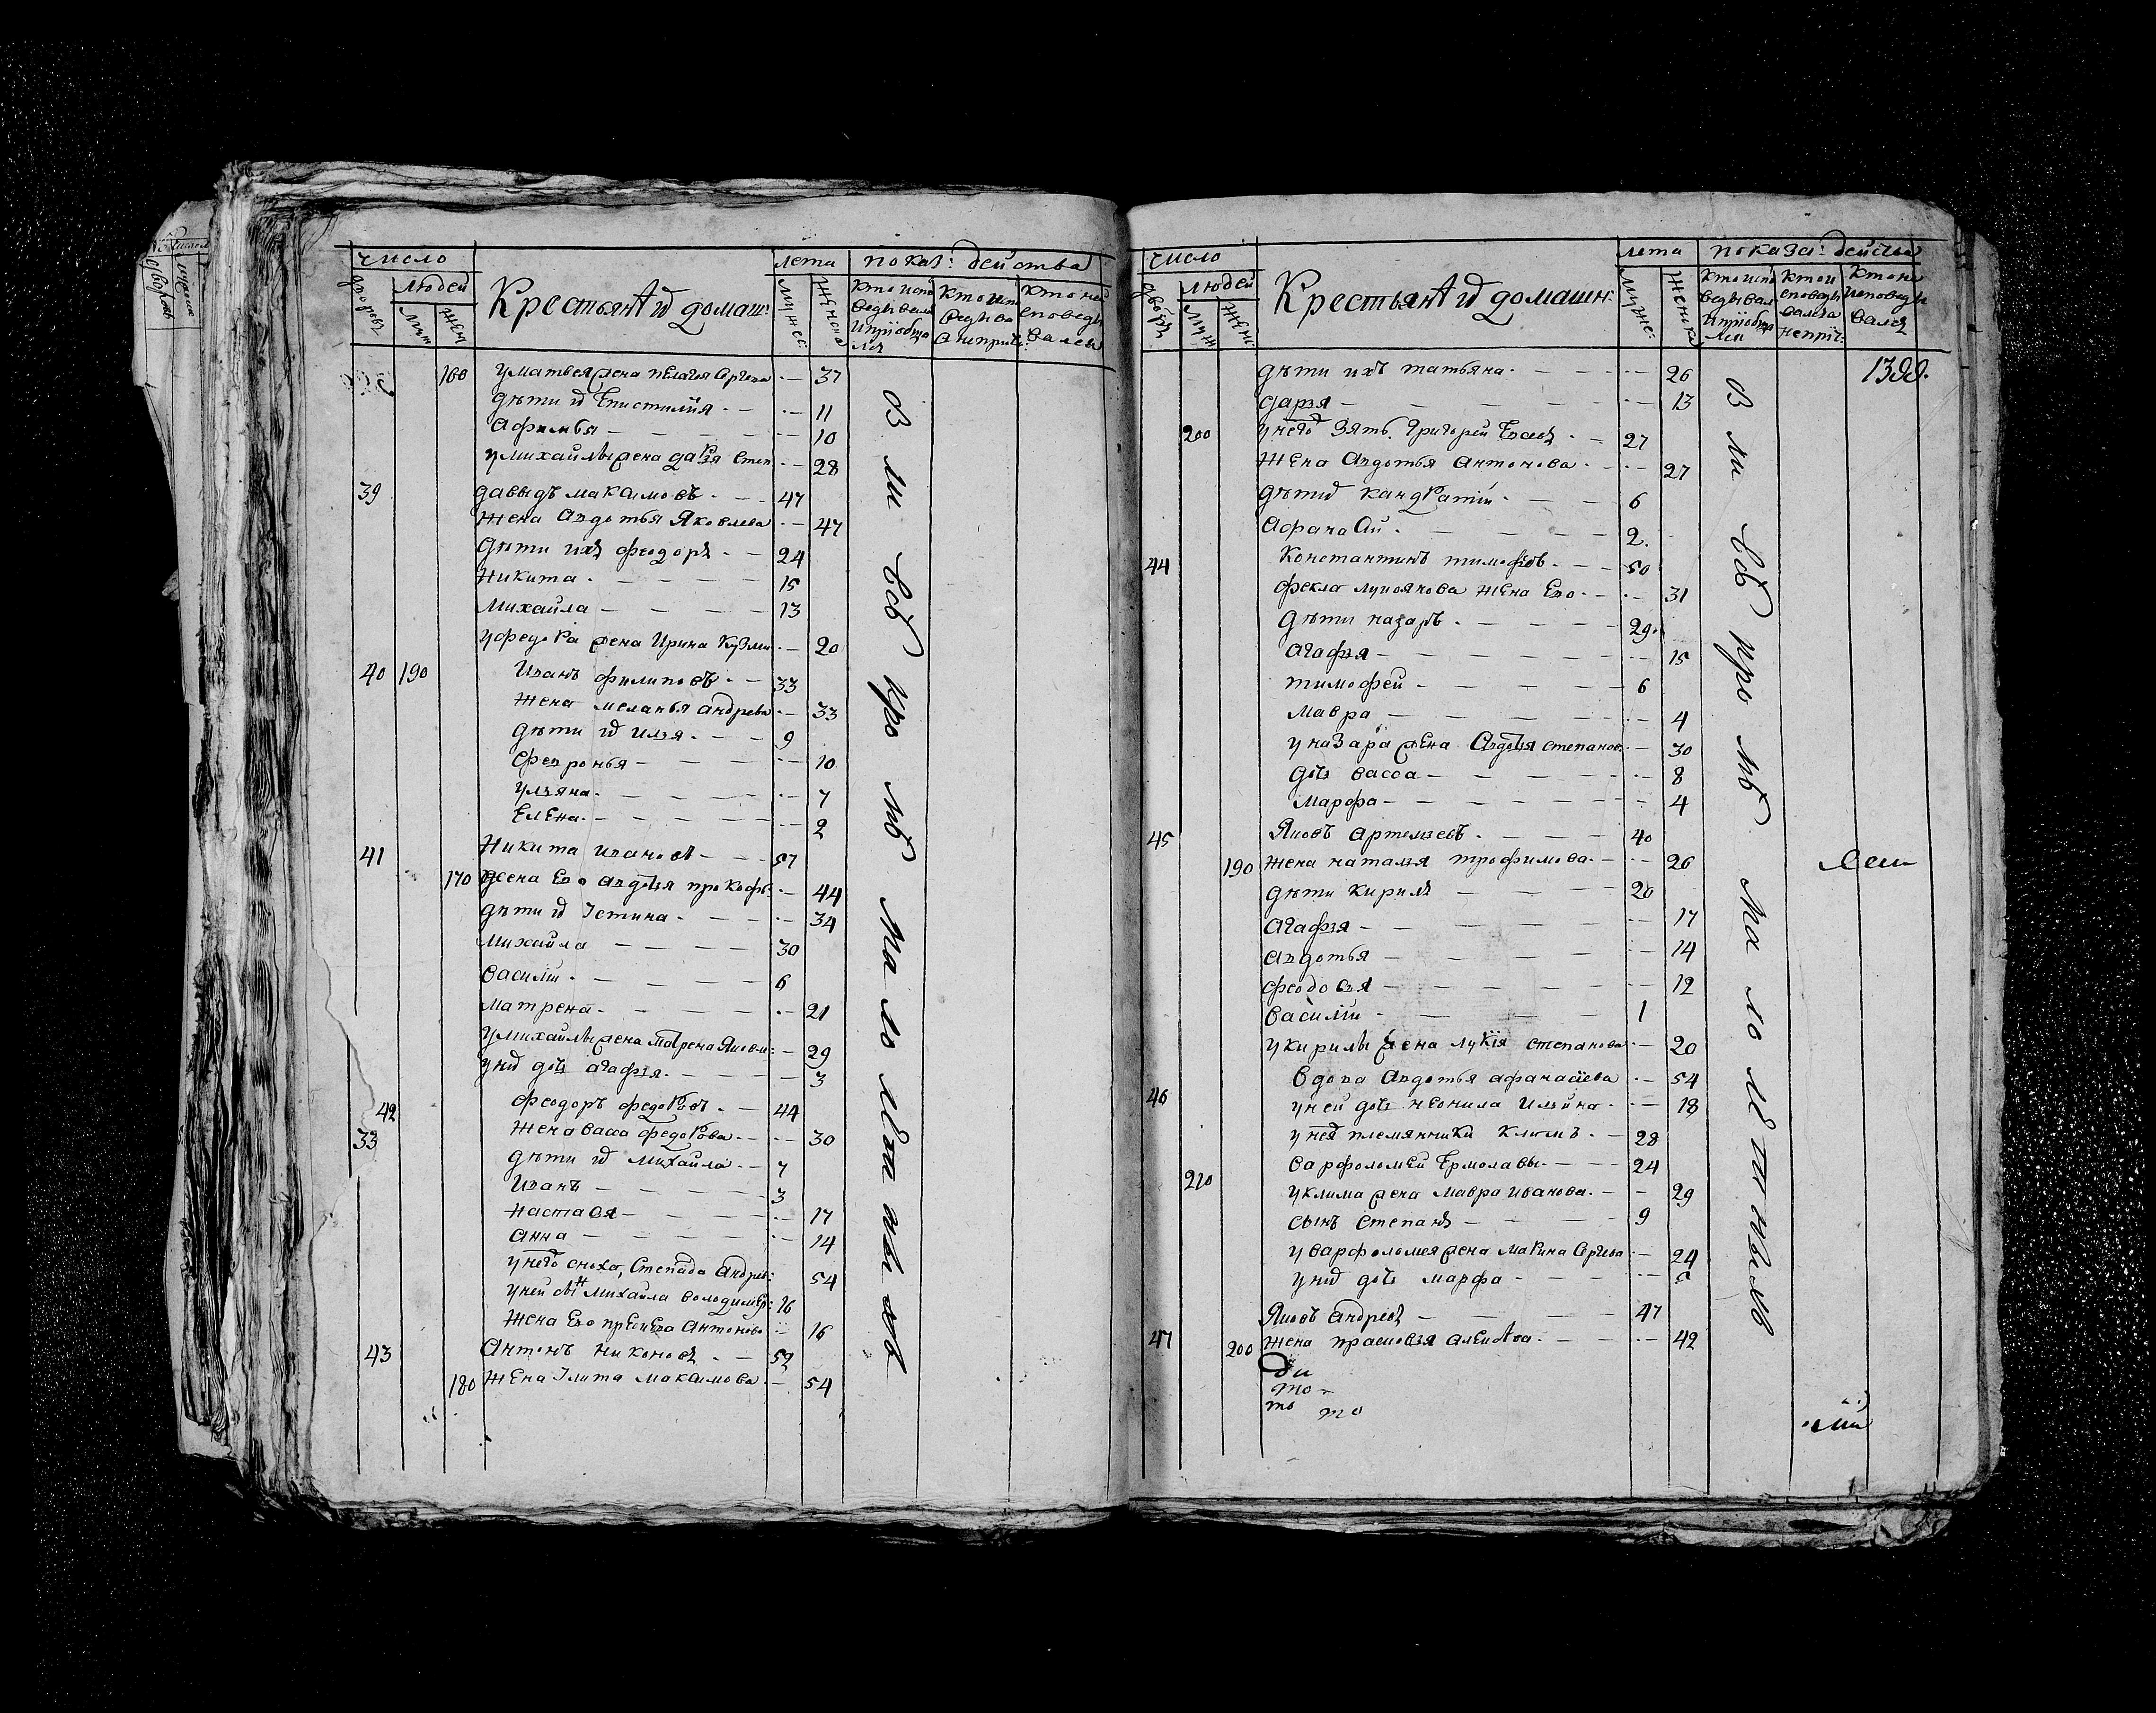 число
Людей
дворовъ
муж
жен
Крестьянѣ и домаш:
лета
мужес:
женска
показ: действа
кто испо
ведывался
и приобща
лся
Кто испо
ведыва
а неприч:
Кто не и
споведы
вался
160 у матвея жена пелагея Сргеева -- 37
дѣти их Епистимия -- 11
Афимья -- 10
у михайлы жена дарья Степ -- 28
39 давыдъ макСимовъ -- 47
жена Авдотья Яковлева -- 47
дѣти ихъ феодоръ -- 24
Никита -- 15
Михайла -- 13
у федора жена Ирина Кузми -- 20
40 190 Иванъ филиповъ -- 33
жена меланья андрева -- 33
дѣти их илья -- 9
Февронья -- 10
ульяна -- 7
Елена -- 2
41 Никита ивановъ -- 57
170 жена Ево авдотья прокофь: -- 44
дѣти их Iстина -- 34
михайла -- 30
василий -- 6
матрена -- 21
у михайлы жена матрена Яковл: -- 29
у них дочь агафья -- 3
42 феодоръ федоровъ -- 44
33 жена васса федорова -- 30
дѣти их михаила -- 7
Иванъ -- 3
настася -- 17
анна -- 14
у него сноха, Степанида Андрев: 54
у ней сынъ михайла володимер: 16
жена Ево -- 16
43 Антонъ никоновъ -- 52
180 жена Iлита макСимова -- 54
число
Людей
дворъ
муж
жен:
Крестьянѣ и домашн:
лета
муже:
женска
показа: действа
кто испо
ведывал
и приобща
лся
кто и
споведы
вался а
неприч:
кто не
исповеды
вался
дѣти ихъ татьяна -- 26
дарья -- 13
200 у него зять григорей Евсеевъ -- 27
жена авдотья антонова -- 27
дѣти их кандратий -- 6
афанаСий -- 2
44 Константинъ тимофѣевъ -- 50
фекла лупоянова жена Ево -- 31
дѣти назаръ -- 29
агафья -- 15
тимофей -- 6
мавра -- 4
у назара жена Авдотья степанов: -- 30
дочь васса -- 8
марфа -- 4
45 Яковъ артемьевъ -- 40
190 жена наталья трофимова -- 26
дѣти кирилъ -- 20
агафья -- 17
авдотья -- 14
феодосья -- 12
василий -- 1
у кирилы жена лукия степанова -- 20
46 вдова авдотья афанасиева -- 54
у ней дочь неонила ильина -- 18
у нея племянники климъ -- 28
варфоломей Ермолавы -- 24
210 у клима жена мавра иванова -- 29
сынъ степанъ -- 9
у варфоломея жена марина Сргева -- 24
у них дочь марфа -- 5
Яковъ андреевъ -- 47
47 200 жена прасковья алеѯѣева -- 42
ди
то
то
то